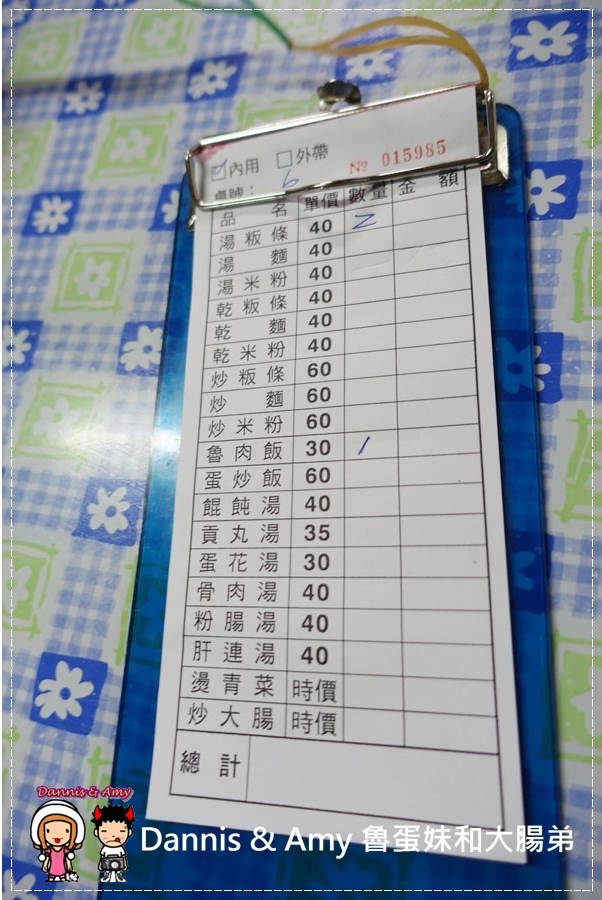 ☑內用 ☐外帶 № 015985
桌號： 6
品名 單價 數量 金額
湯粄條 40 2
湯麵 40
湯米粉 40
乾粄條 40
乾麵 40
乾米粉 40
炒粄條 60
炒麵 60
炒米粉 60
魯肉飯 30 1
蛋炒飯 60
餛飩湯 40
貢丸湯 35
蛋花湯 30
骨肉湯 40
粉腸湯 40
肝連湯 40
燙青菜 時價
炒大腸 時價
總計
Dannis & Amy
Dannis & Amy 魯蛋妹和大腸弟